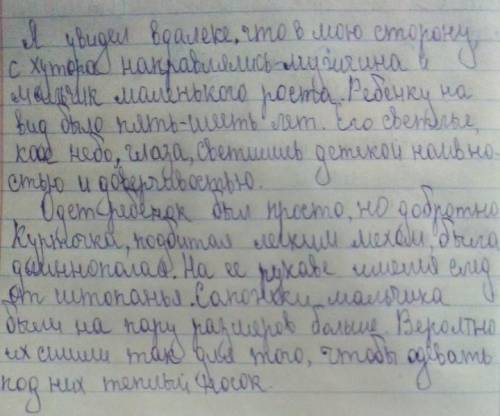 Я увидел вдалеке, что в мою сторону
с хутора направлялись мужчина и
мальчик маленького роста. Ребенку на
вид было пять-шесть лет. Его светлые,
как небо, глаза, светились детской наивно-
стью и доверчивостью.
Одет ребенок был просто, но добротно
Курточка, подбитая легким мехом, была
длиннополая. На ее рукаве имелся след
от штопанья. Сапожки мальчика
были на пару размеров больше. Вероятно
их сшили так для того, чтобы одевать
под них теплый носок.